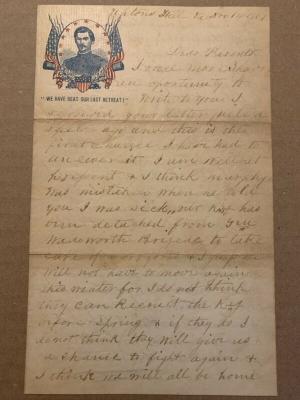 Uptons Hill Va Nov 10 1861
"WE HAVE BEAT OUR LAST RETREAT!"
Dear Parents
I once more have
an oportunity to
Write to you I
received your letter quite a
spell ago and this is the
first chance I have had to
answer it I am well at
present & I think
was mistaken when he told
you I was sick our Regt has
been detached from Gen
Wadsworth Brigade to take
care of
will not have to move again
this winter for I do not think
they can Recruit the Regt
before Spring & if they do I
do not think they will give us
a chance to fight again &
I think we will all be home